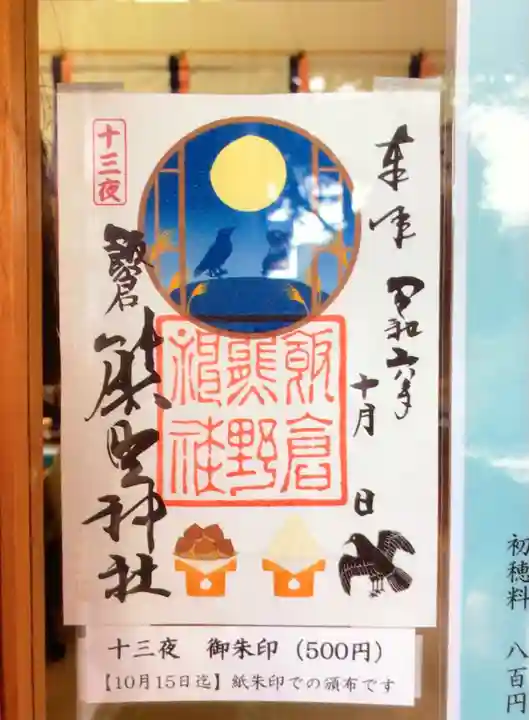 奉拝
令和六年
十月 日
十三夜
飯倉
熊野神社
飯倉
熊野
神社
十三夜 御朱印（500円）
【10月15日迄】紙朱印での頒布です
初穂料 八百円